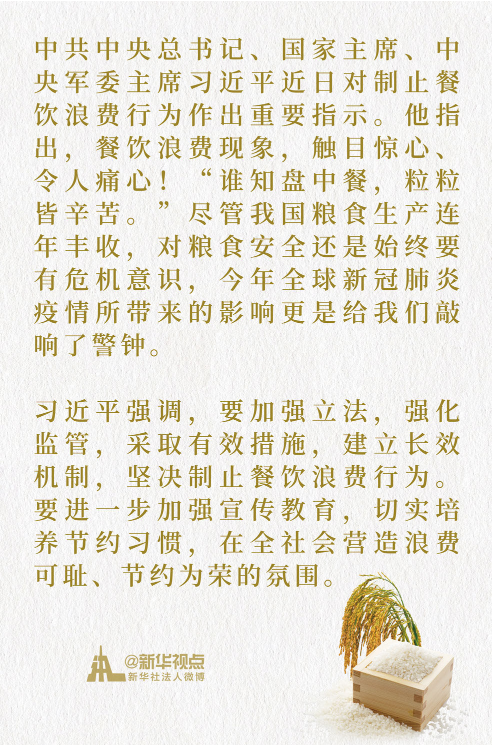 中共中央总书记、国家主席、中
央军委主席习近平近日对制止餐
饮浪费行为作出重要指示。他指
出，餐饮浪费现象，触目惊心、
令人痛心！“谁知盘中餐，粒粒
皆辛苦。”尽管我国粮食生产连
年丰收，对粮食安全还是始终要
有危机意识，今年全球新冠肺炎
疫情所带来的影响更是给我们敲
响了警钟。
习近平强调，要加强立法，强化
监管，采取有效措施，建立长效
机制，坚决制止餐饮浪费行为。
要进一步加强宣传教育，切实培
养节约习惯，在全社会营造浪费
可耻、节约为荣的氛围。
@新华视点
新华社法人微博